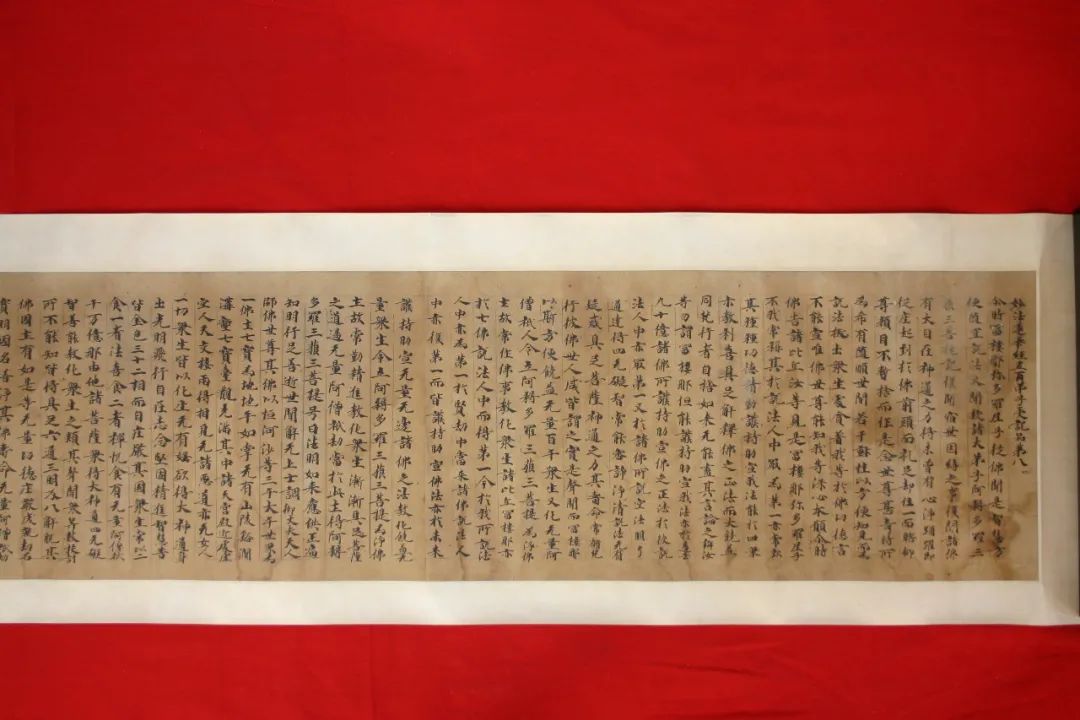 妙法蓮華經五百弟子受記品第八
尒時富樓那弥多羅尼子從佛聞是智慧方
便随宜說法又聞授諸大弟子阿耨多羅三
藐三菩提記復聞宿世因緣之事復聞諸佛
有大自在神通之力得未曾有心淨踊躍即
從座起到於佛前頭面礼足却住一面瞻仰
尊顏目不暫捨而作是念世尊甚奇特所
為希有随順世間若干種性以方便知見而為
說法拔出衆生處處貪著我等於佛功德言
不能宣唯佛世尊能知我等深心本願尒時
佛告諸比丘汝等見是富樓那弥多羅尼子
不我常稱其於說法人中冣為第一亦常歎
其種種功德精勤護持助宣我法能於四衆
示教利喜具足解釋佛之正法而大饒益
同梵行者自捨如来无能盡其言論之辯汝
等勿謂富樓那但能護持助宣我法亦於過去
九十億諸佛所護持助宣佛之正法於彼說
法人中亦冣第一又於諸佛所說空法明了
通達得四无礙智常能審諦清淨說法无有
疑惑具足菩薩神通之力随其壽命常脩梵
行彼佛世人咸皆謂之實是聲聞而富樓那
以斯方便饒益无量百千衆生又化无量阿
僧祇人令立阿耨多羅三藐三菩提為淨佛
土故常作佛事教化衆生諸比丘富樓那亦
於七佛說法人中而得第一今於我所說法
人中亦為第一於賢劫中當来諸佛說法人
中亦復第一而皆護持助宣佛法亦於未来
護持助宣无量无邊諸佛之法教化饒益无
量衆生令立阿耨多羅三藐三菩提為淨佛
土故常勤精進教化衆生漸漸具足菩薩
之道過无量阿僧祇劫當於此土得阿耨
多羅三藐三菩提号曰法明如来應供正遍
知明行足善逝世間解无上士調御丈夫天人
師佛世尊其佛以恒河沙等三千大千世界為
一佛土七寶為地地平如掌无有山陵谿澗
溝壑七寶臺觀充滿其中諸天宮殿近處虛
空人天交接兩得相見无諸惡道亦无女人
一切衆生皆以化生无有婬欲得大神通身
出光明飛行自在志念堅固精進智慧普
皆金色三十二相而自莊嚴其國衆生常以二
食一者法喜食二者禪悅食有无量阿僧祇
千万億那由他諸菩薩衆得大神通四无礙
智善能教化衆生之類其聲聞衆筭數挍計
所不能知皆得具足六通三明及八解脫其
佛國土有如是等无量功德莊嚴成就劫名
寶明國名善淨其佛壽命无量阿僧祇劫